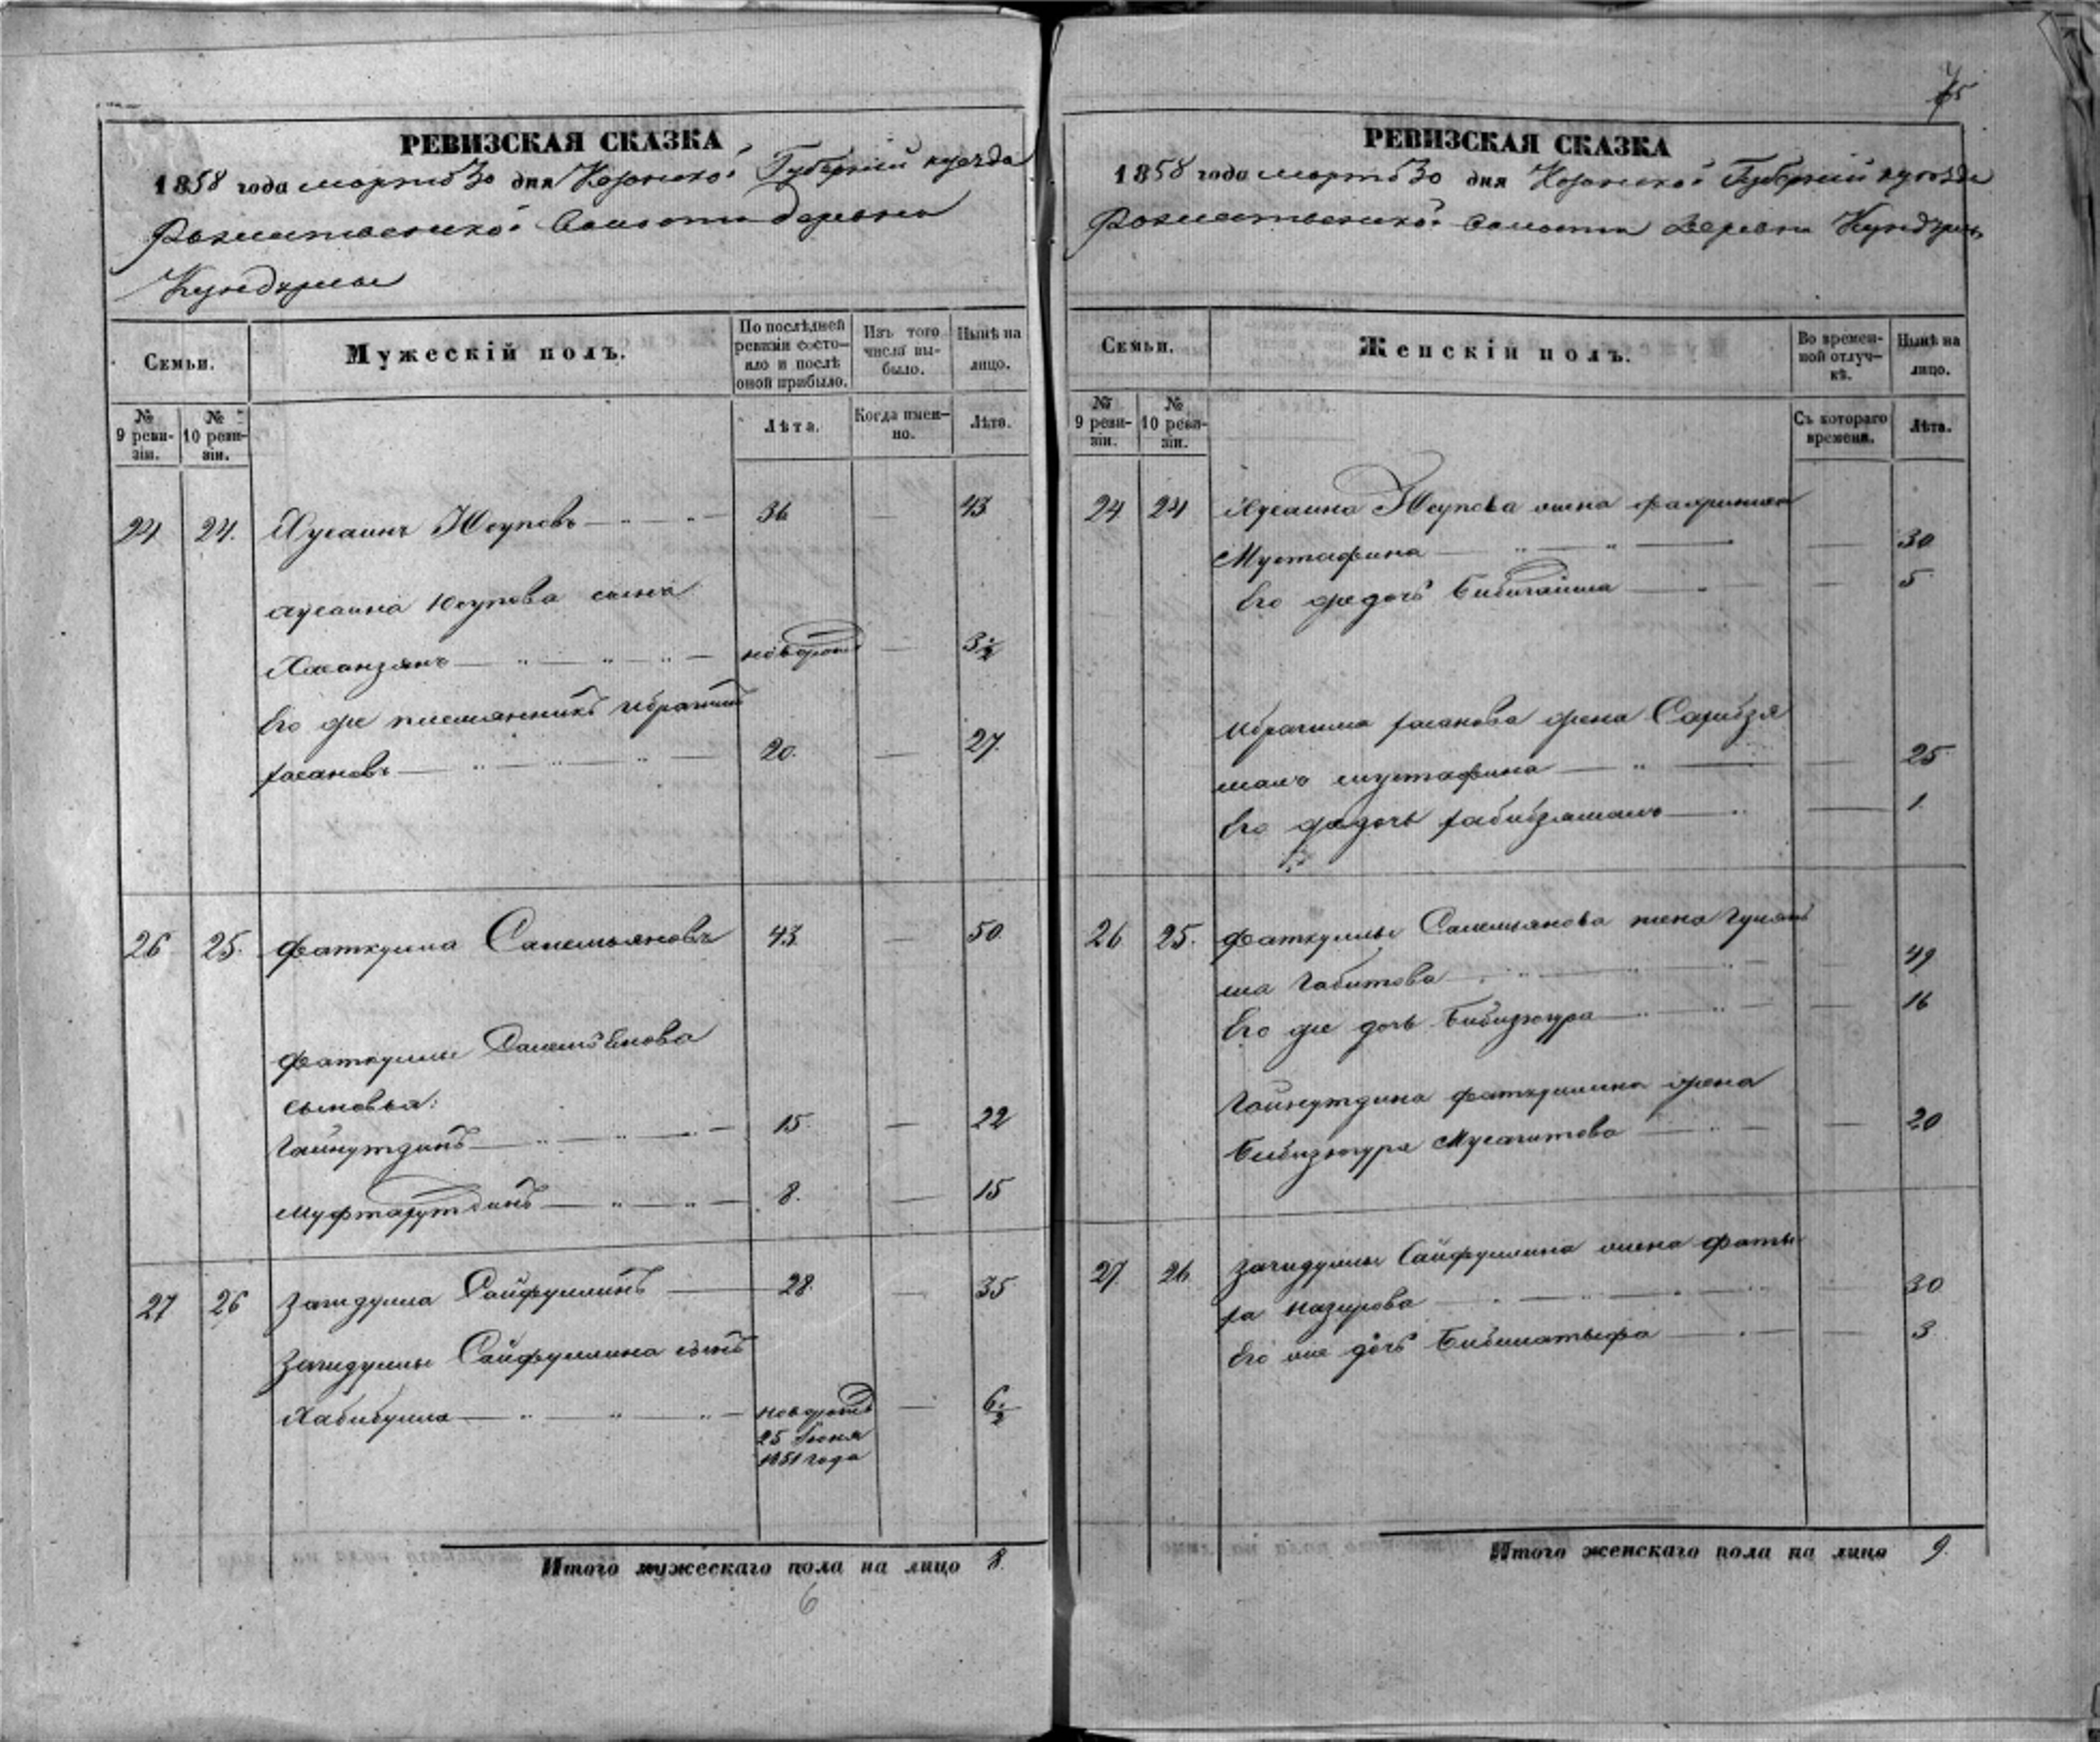 75
РЕВИЗСКАЯ СКАЗКА
1858 года марта 30 дня Казанской Губернии и уезда
волости деревни
Кундурлы
Семьи.
Мужескій полъ.
По послѣдней ревизіи состояло и послѣ оной прибыло.
Изъ того числа выбыло.
Нынѣ на лицо.
№ 9 ревизіи.
№ 10 ревизіи.
Лѣта.
Когда именно.
Лѣта.
24 24. Хусаинъ Юсуповъ 36 — 43
Хусаина Юсупова сынъ
Хасанзянъ новорож — 3 1/2
Его же племянникъ Ибрагимъ
Хасановъ 20. — 27.
26 25. Фаткулла Салемьяновъ 43. — 50.
Фаткуллы Салемьянова
сыновья:
Гайнутдинъ 15. — 22
Мифтахутдинъ 8. — 15
27 26 Загидулла Сайфуллинъ 28. — 35
Загидуллы Сайфуллина сынъ
Хабибулла новорож — 6 1/2
25 Июня
1851 года
Итого мужескаго пола на лицо 8.
6
РЕВИЗСКАЯ СКАЗКА
1858 года марта 30 дня Казанской Губернии и уезда
волости деревни Кундурлы
Семьи.
Женскій полъ.
Во временной отлучкѣ.
Нынѣ на лицо.
№ 9 ревизіи.
№ 10 ревизіи.
Съ котораго времени.
Лѣта.
24 24 Хусаина Юсупова жена
Мустафина — 30
Его же дочь Бибигайша — 5
Ибрагима Хасанова жена Сарбзя
малъ Мустафина — 25
Его же дочь Хабибзямалъ — 1.
26 25. Фаткуллы Салемьянова жена
Габитова — 49
Его же дочь Бибизюгра — 16
Гайнутдина Фаткуллина жена
Бибизюгра Мусагитова — 20
27 26 Загидуллы Сайфуллина жена Фаты
ха Назирова — 30
Его же дочь Бибилатыфа — 3
Итого женскаго пола на лицо 9.